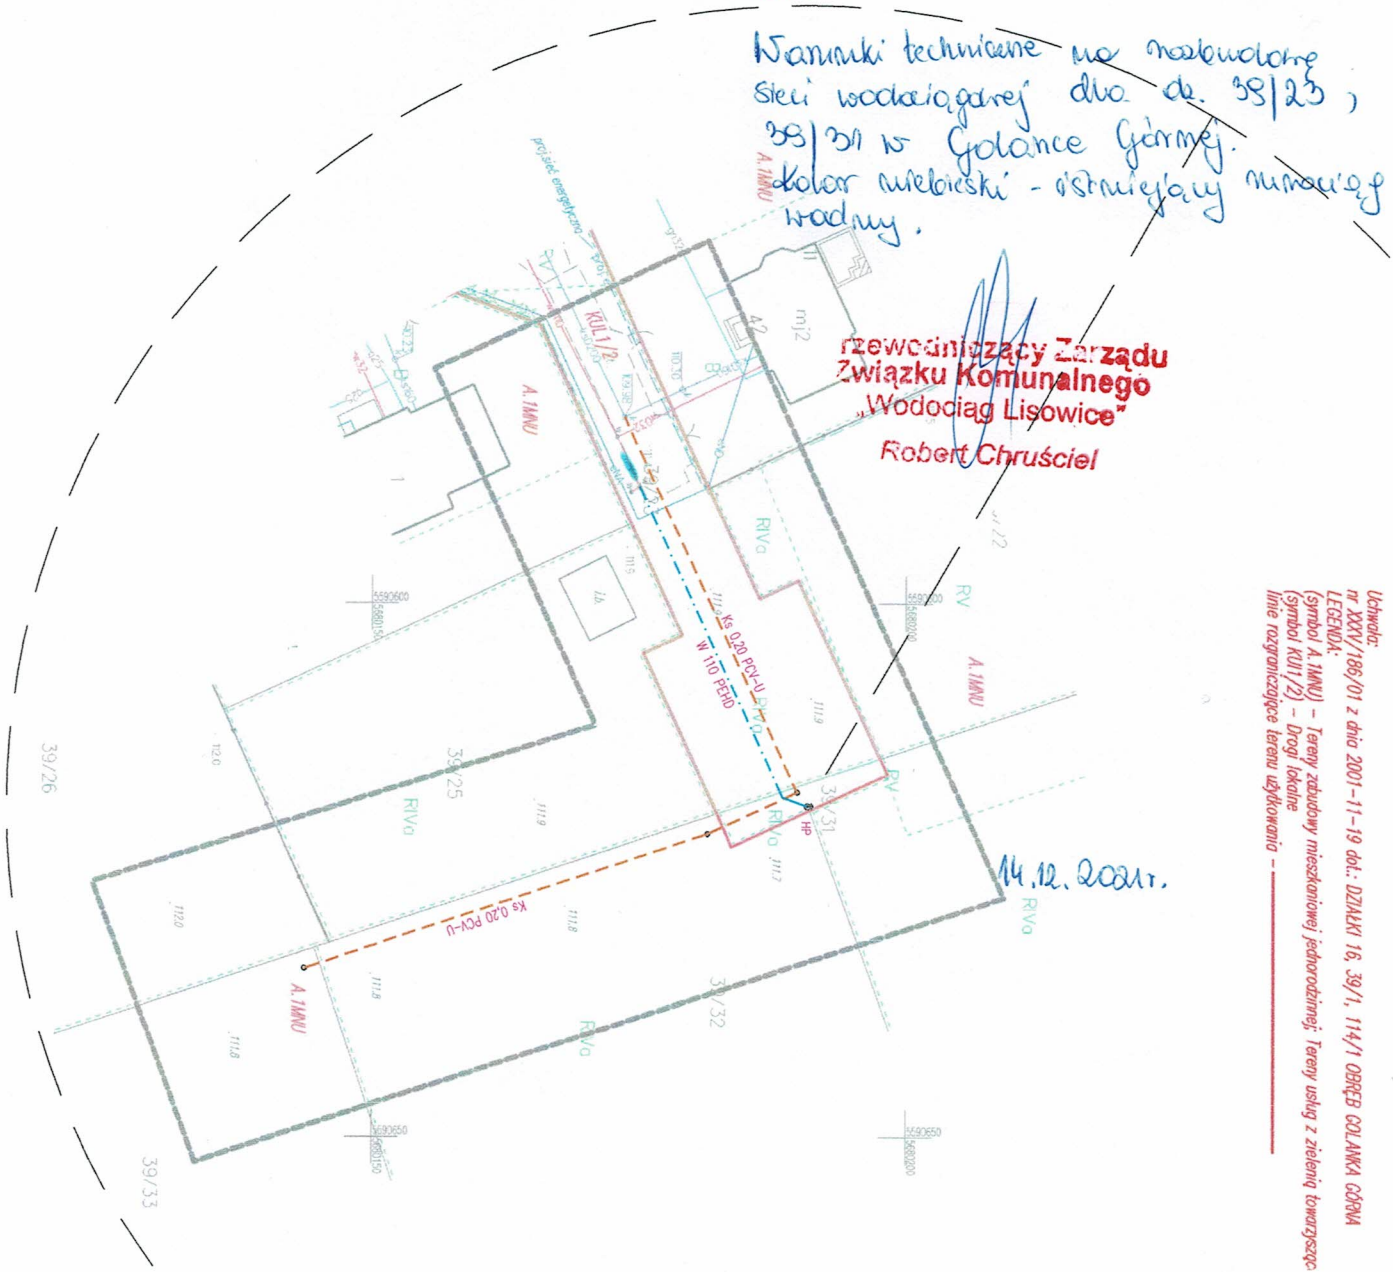 Warunki techniczne na rozbudowę
sieci wodociągowej dla dz. 39/23,
39/31 w Golance Górnej.
Kolor niebieski - istniejący rurociąg
wodny.
rzewodniczący Zarządu
Związku Komunalnego
„Wodociąg Lisowice"
Robert Chruściel
14.12.2021r.
Uchwała:
nr XXXV/186/01 z dnia 2001-11-19 dot.: DZIAŁKI 16, 39/1, 114/1 OBRĘB GOLANKA GÓRNA
LEGENDA:
(symbol A.1MNU) - Tereny zabudowy mieszkaniowej jednorodzinnej; Tereny usług z zielenią towarzysząc
(symbol KUl1/2) - Drogi lokalne
linie rozgraniczające terenu użytkowania -
proj.sieć energetyczna
A.1MNU
KUL1/2
mj2
42
A.1MNU
1
RIVa
RV
A.1MNU
5590600
5680150
5590600
5680200
Ks 0,20 PCV-U
W 110 PEHD
RIVa
111.9
39/26
112.0
39/25
RIVa
111.9
RV
39/31
HP
RIVa
111.7
RIVa
112.0
Ks 0,20 PCV-U
111.8
A.1MNU
111.8
39/32
111.8
RIVa
5590650
5680150
5590650
5680200
39/33